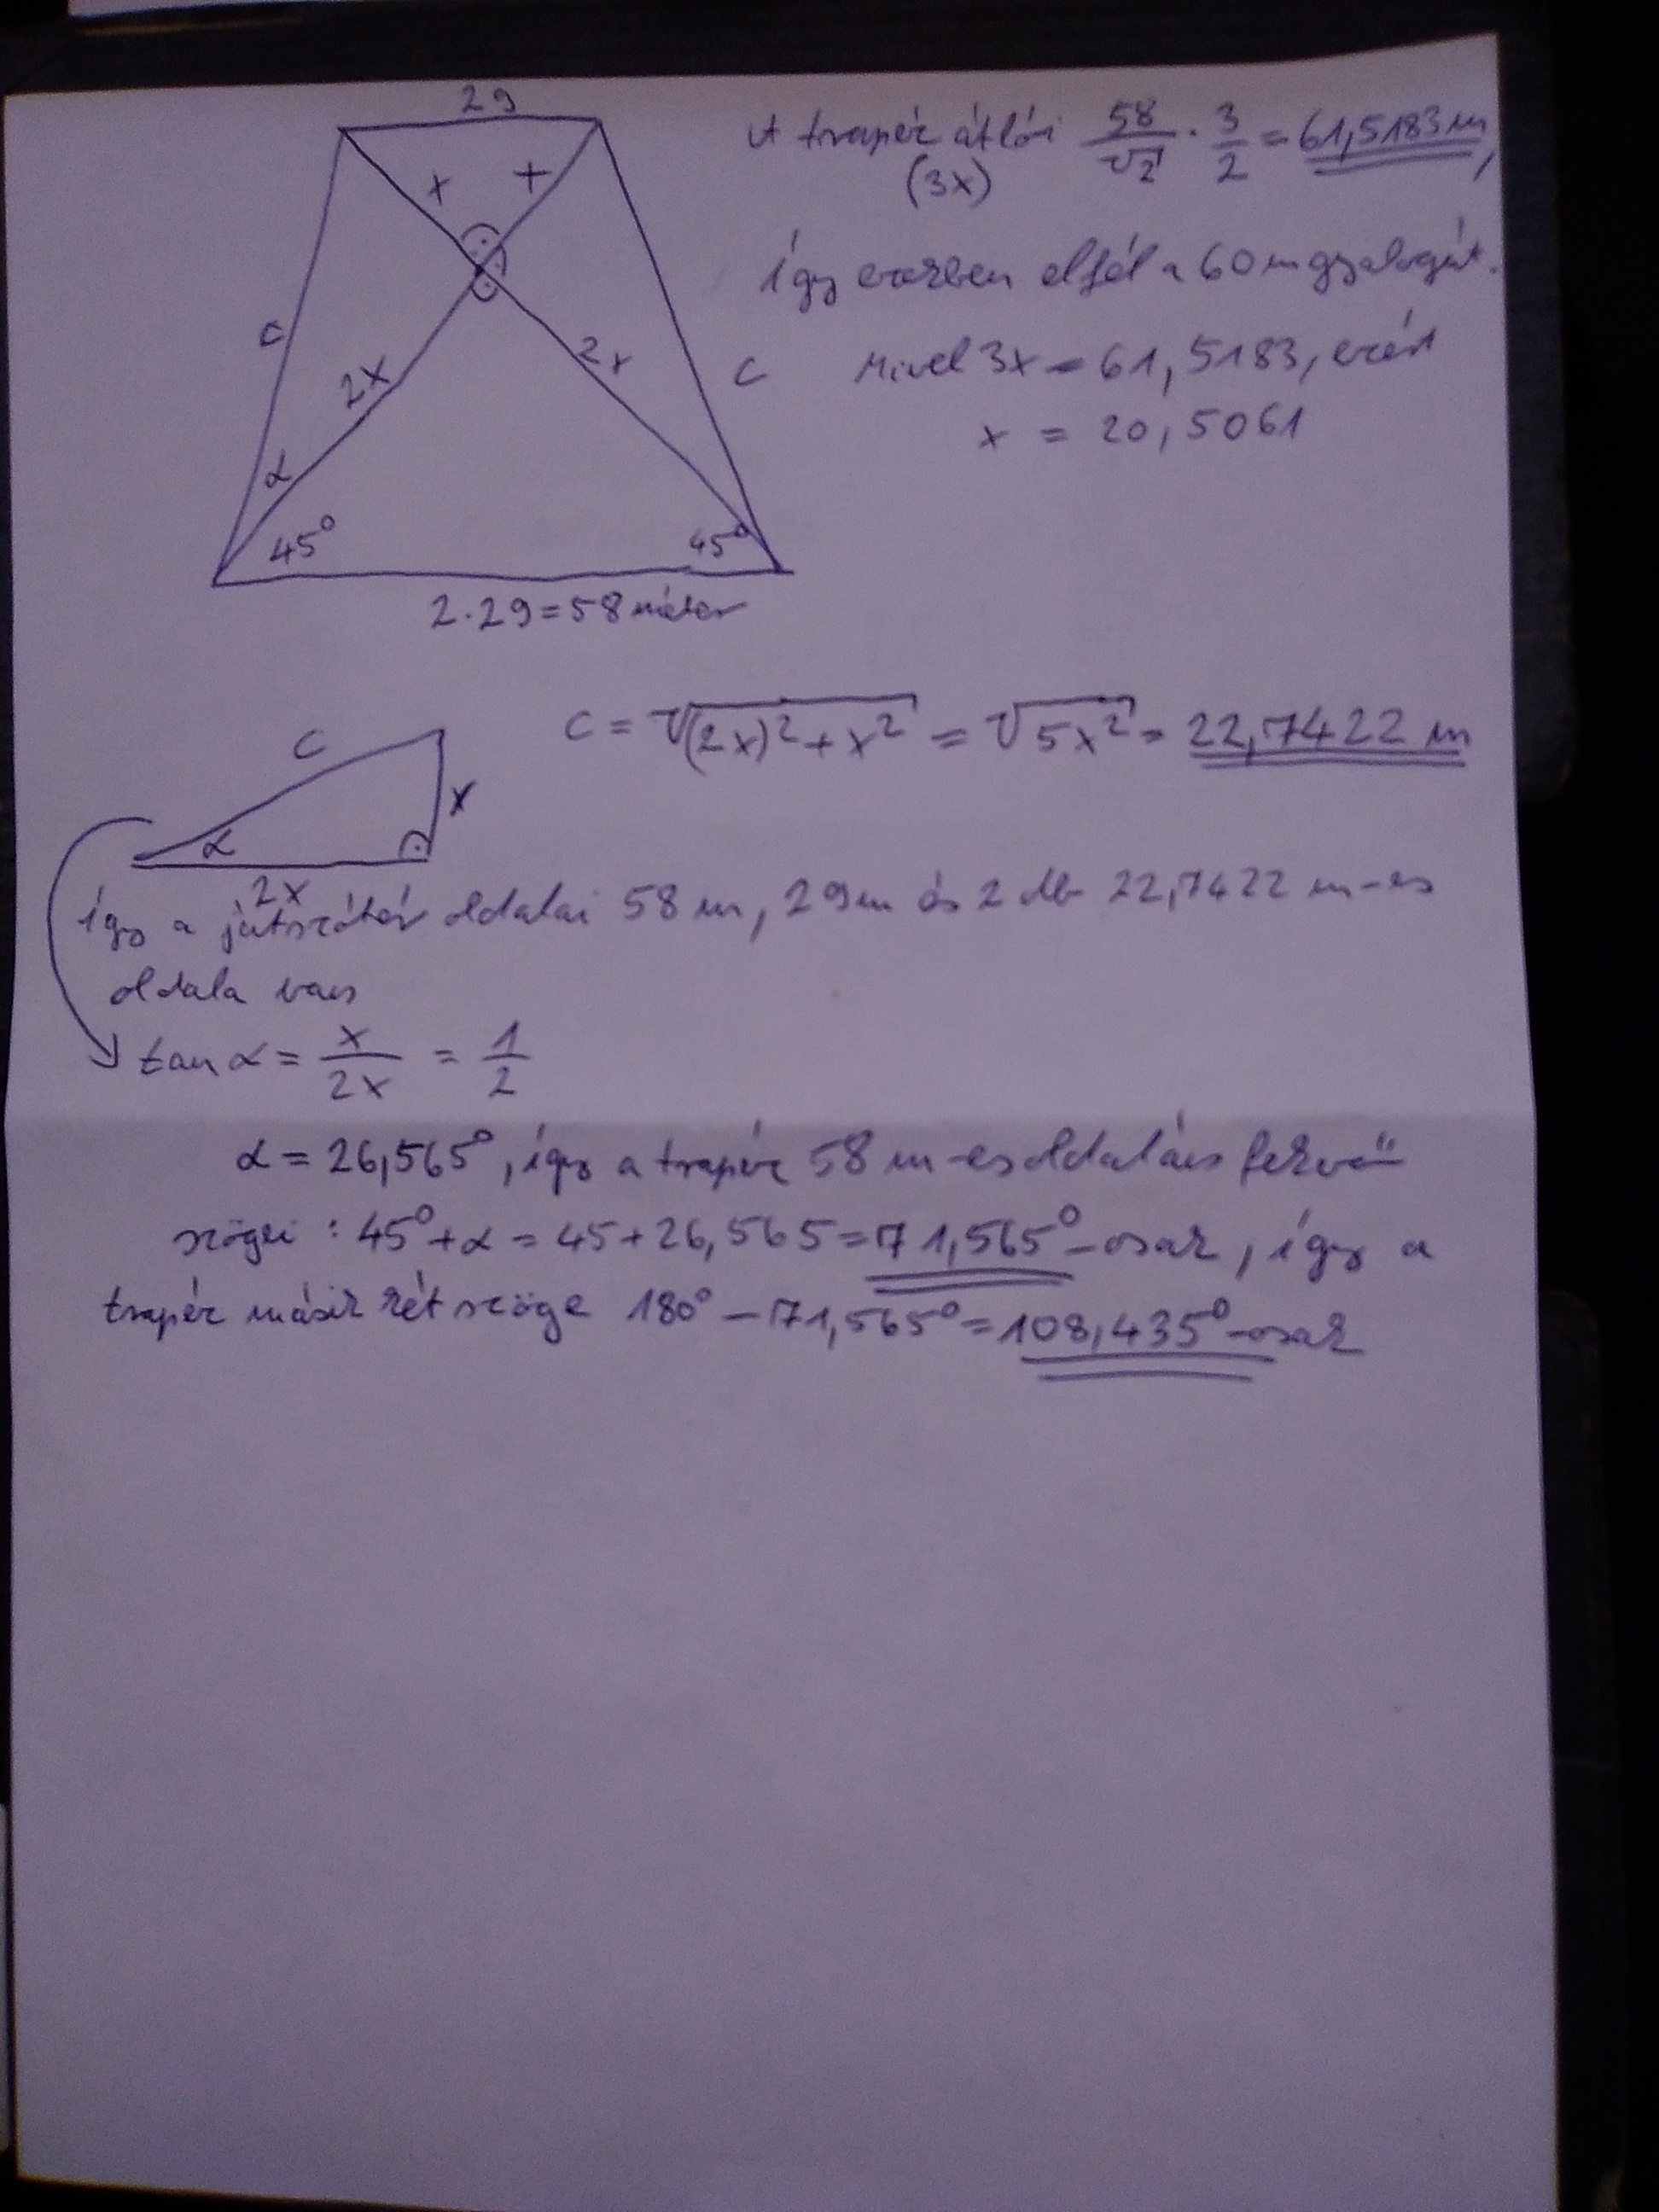 29
A trapéz átlói 58/√2 · 3/2 = 61,5183 m,
(3x)
x x
így ezekben elfér a 60 m gyalogút.
c 2x 2x c
Mivel 3x = 61,5183, ezért
x = 20,5061
α
45° 45°
2·29=58 méter
c = √((2x)²+x²) = √(5x²) = 22,7422 m
c
x
α
2x
így a játszótér oldalai 58 m, 29 m és 2 db 22,7422 m-es
oldala van
tan α = x/2x = 1/2
α = 26,565°, így a trapéz 58 m-es oldalán fekvő
szögei : 45°+α = 45+26,565=71,565°-osak, így a
trapéz másik két szöge 180° − 71,565° = 108,435°-osak